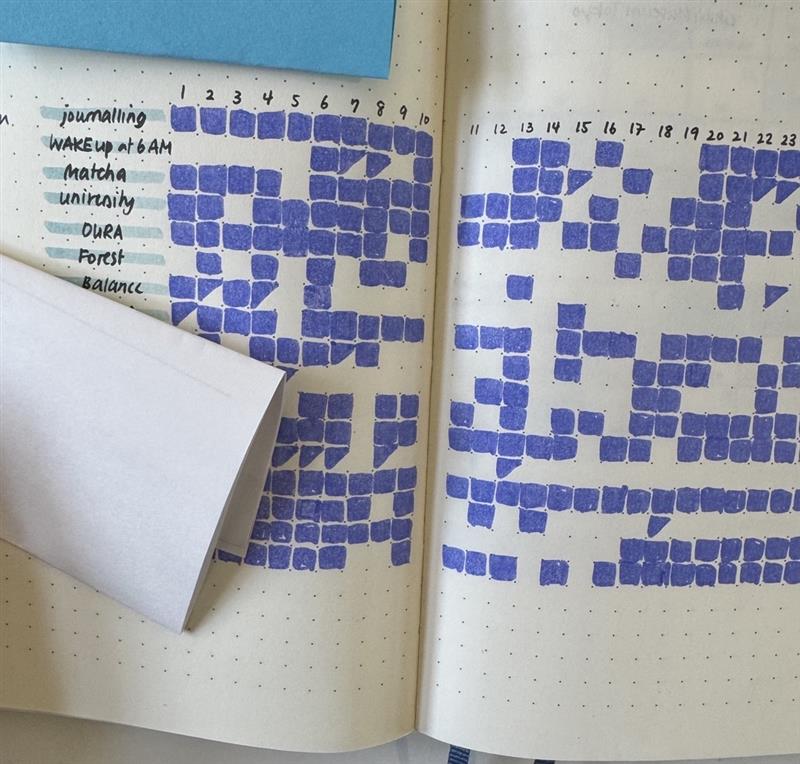 1 2 3 4 5 6 7 8 9 10 11 12 13 14 15 16 17 18 19 20 21 22 23
journalling
WAKE up at 6 AM
Matcha
uniresity
OURA
Forest
Balance